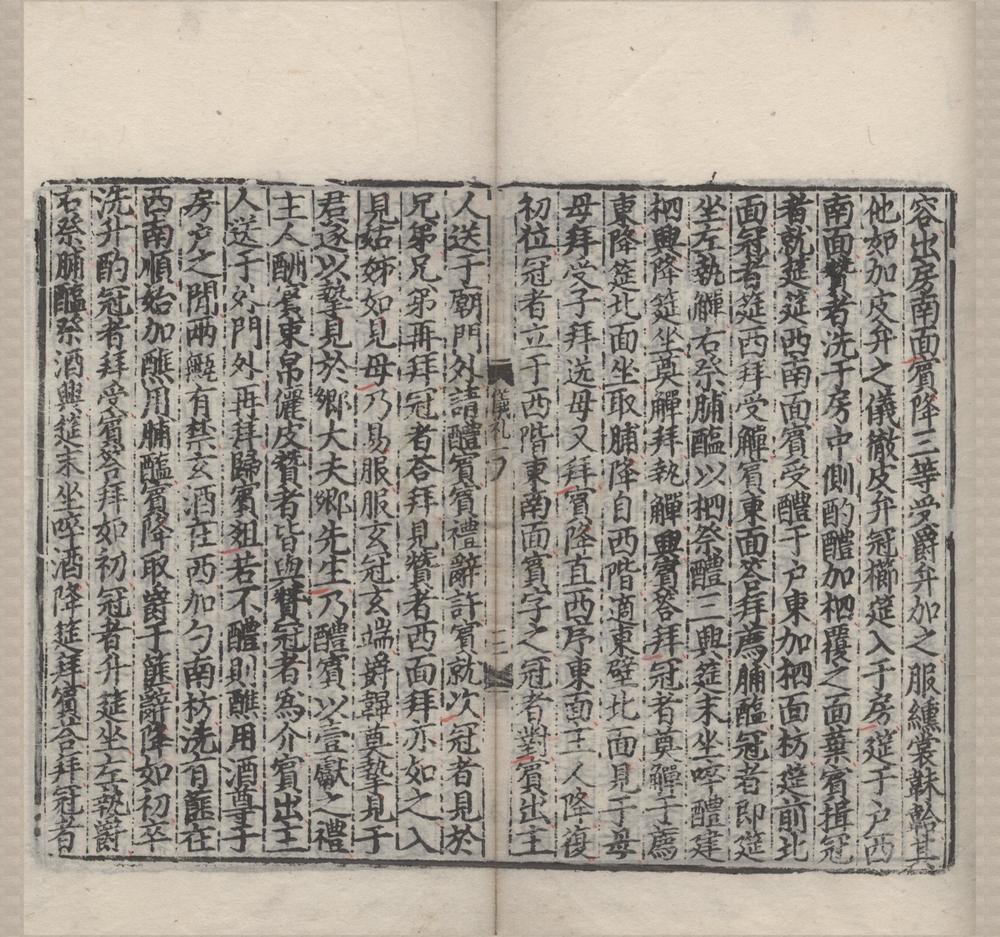 容出房南面賔降三等受爵弁加之服纁裳韎韐其
他如加皮弁之儀徹皮弁冠櫛筵入于房筵于户西
南面贊者洗于房中側酌醴加柶覆之面葉賔揖冠
者就筵筵西南面賔受醴于户東加柶面枋筵前北
面冠者筵西拜受觶賔東面荅拜薦脯醢冠者即筵
坐左執觶右祭脯醢以柶祭醴三興筵末坐啐醴建
柶興降筵坐奠觶拜執觶興賔荅拜冠者奠觶于薦
東降筵北面坐取脯降自西階適東壁北面見于母
母拜受子拜送母又拜賔降直西序東面主人降復
初位冠者立于西階東南面賔字之冠者對賔出主
儀礼 三
人送于廟門外請醴賔賔禮辭許賔就次冠者見於
兄弟兄弟再拜冠者荅拜見贊者西面拜亦如之入
見姑姊如見母乃易服服玄冠玄端爵韠奠摯見于
君遂以摯見於鄉大夫鄉先生乃醴賔以壹獻之禮
主人酬賔束帛儷皮贊者皆與贊冠者爲介賔出主
人送于外門外再拜歸賔俎若不醴則醮用酒尊于
房户之閒兩甒有禁玄酒在西加勺南枋洗有篚在
西南順始加醮用脯醢賔降取爵于篚辭降如初卒
洗升酌冠者拜受賔荅拜如初冠者升筵坐左執爵
右祭脯醢祭酒興筵末坐啐酒降筵拜賔荅拜冠者